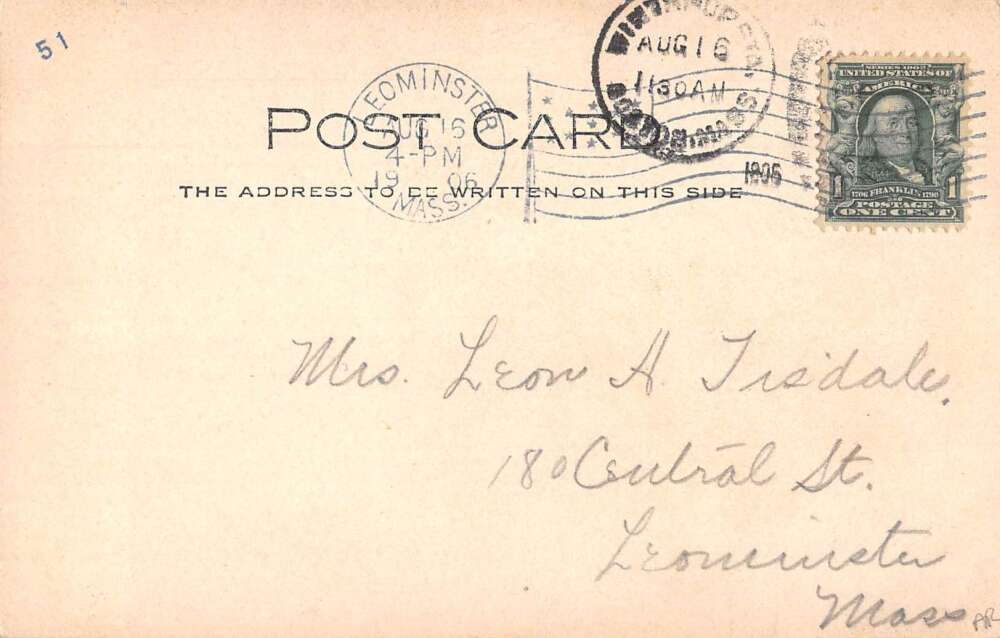 51
WINTHROP STA.
AUG 16
1130AM
BOSTON, MASS.
1906
LEOMINSTER
AUG 16
4-PM
19 06
MASS.
SERIES 1902
UNITED STATES OF
AMERICA
1 1706 FRANKLIN 1790 1
POSTAGE
ONE CENT
POST CARD
THE ADDRESS TO BE WRITTEN ON THIS SIDE
Mrs. Leon H. Tisdale.
180 Central St.
Leominster
Mass